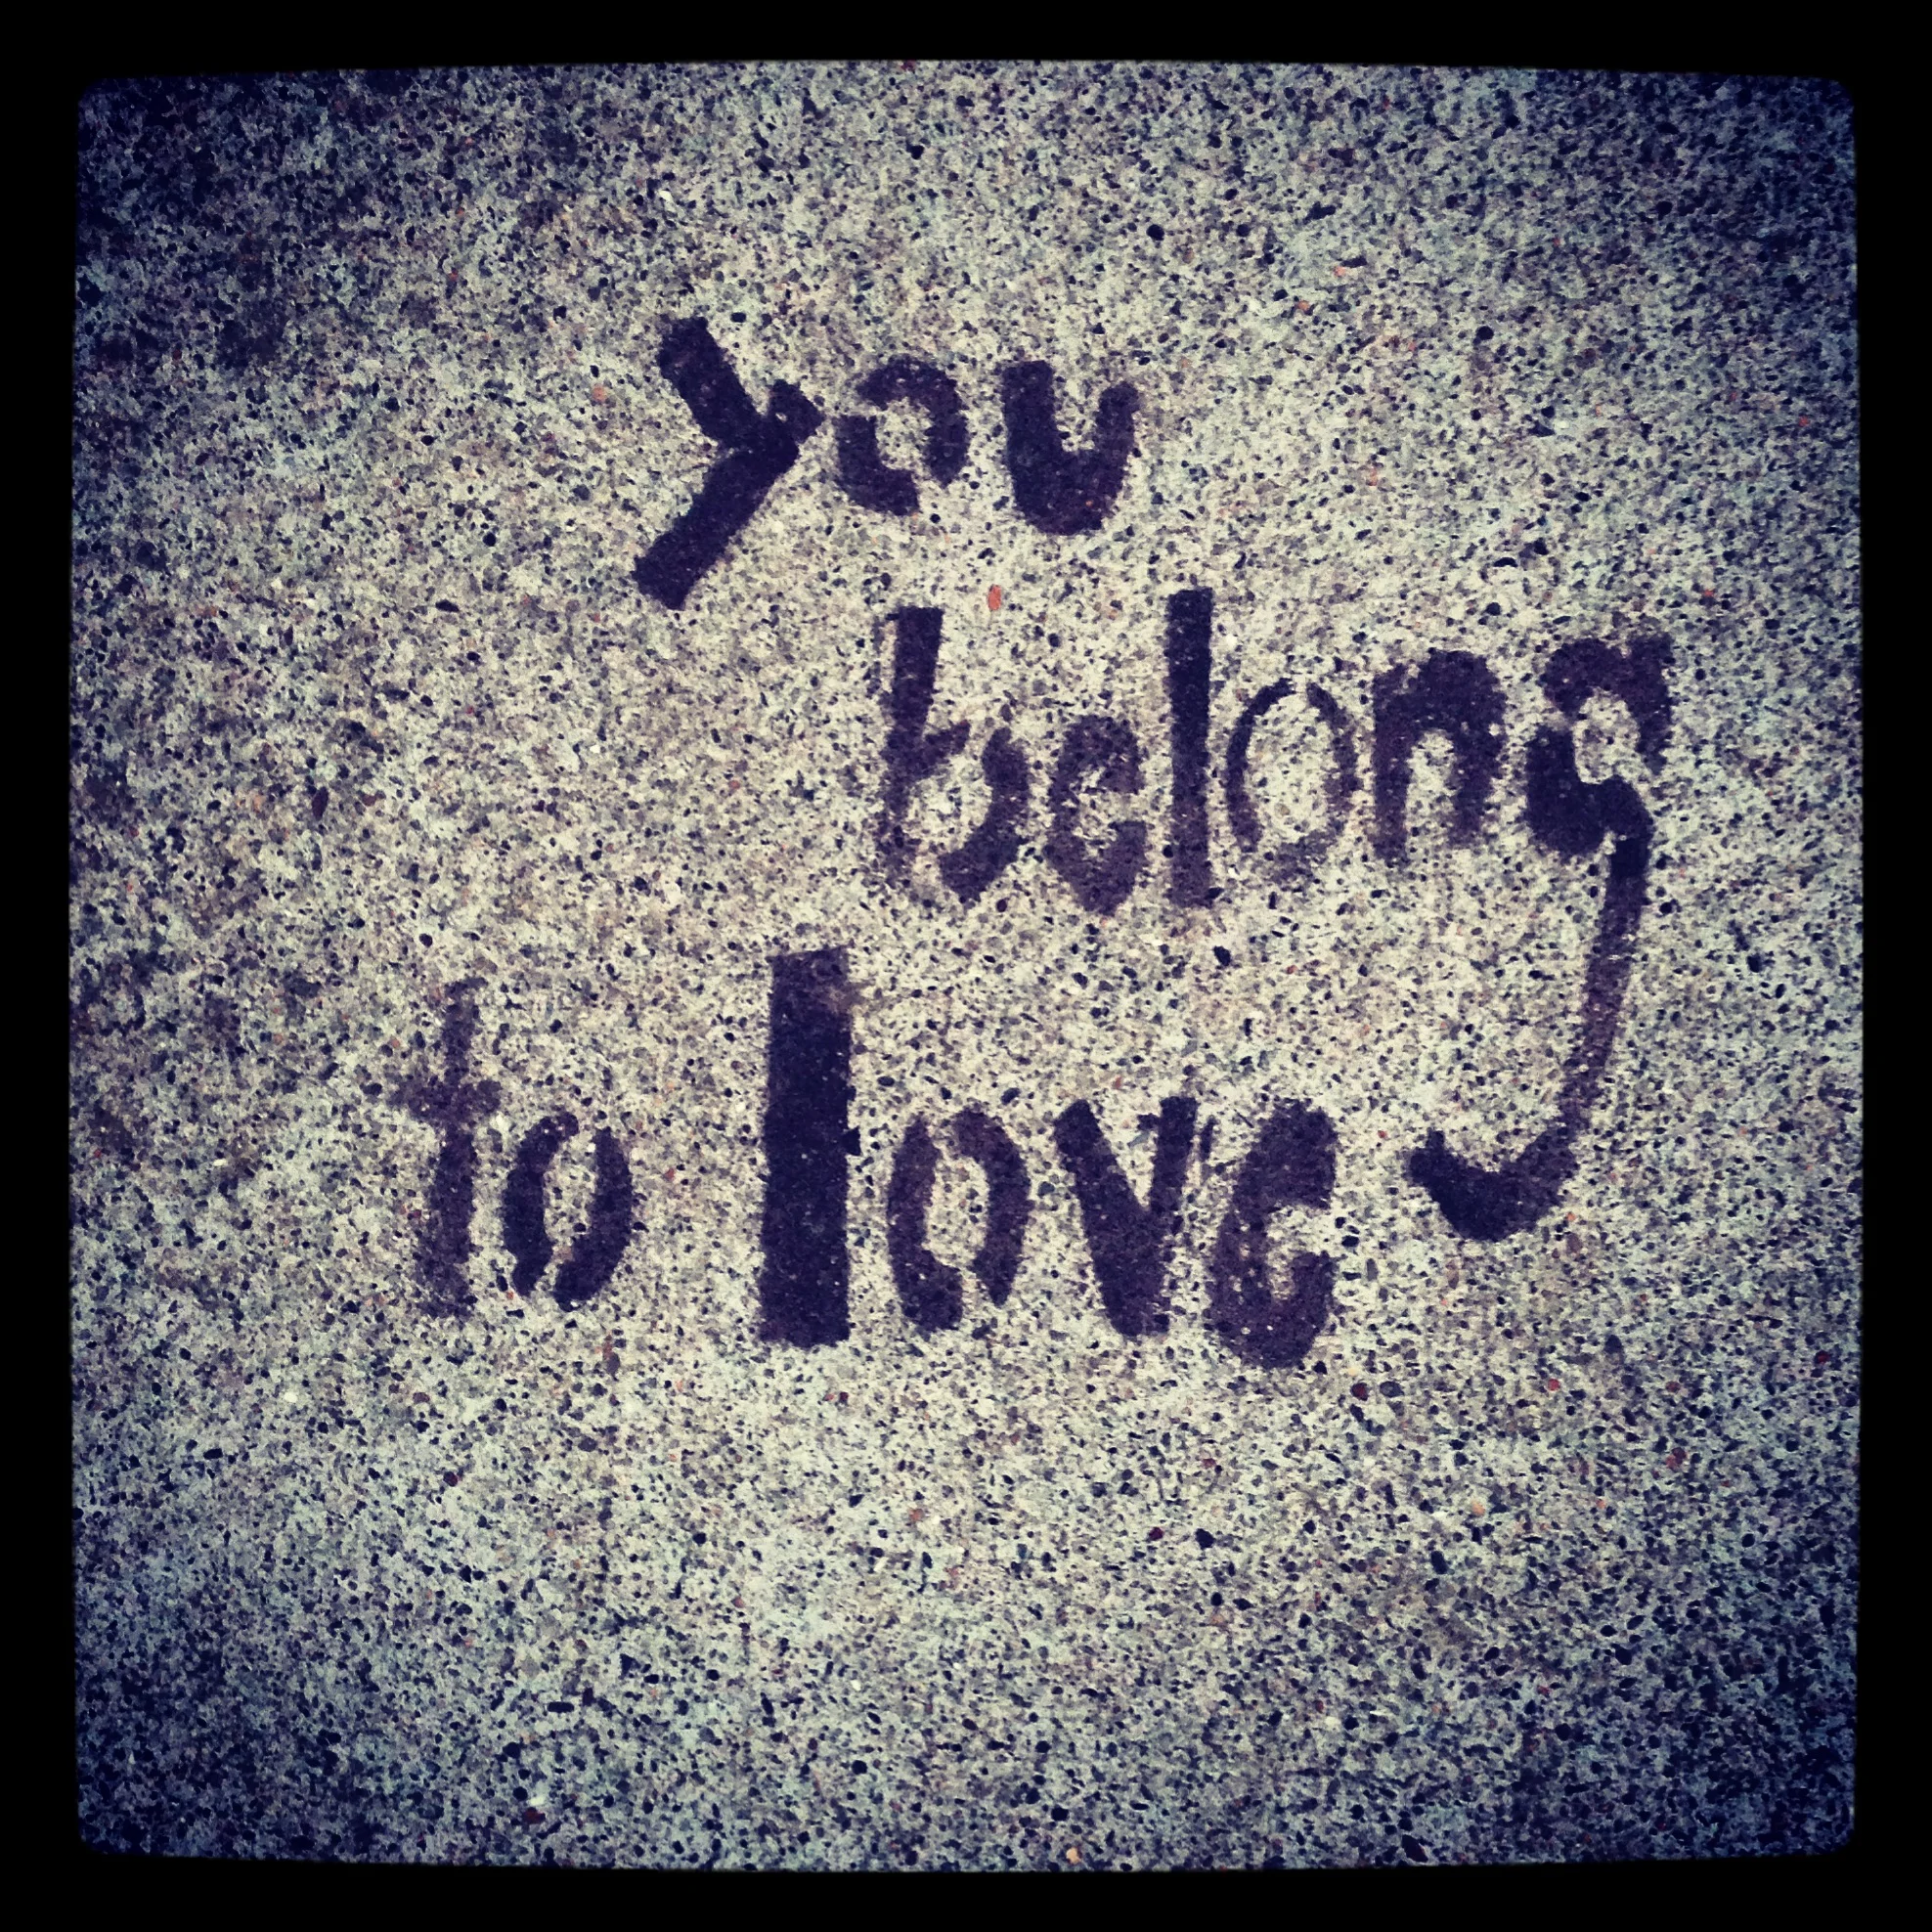 you
belong
to love